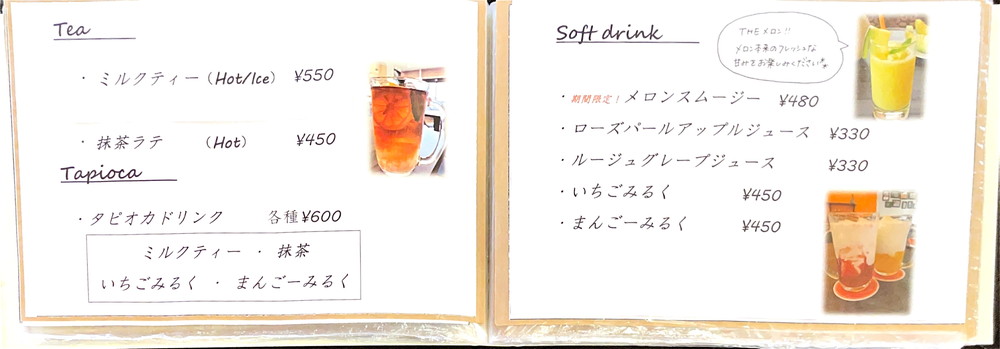 Tea
・ミルクティー (Hot/Ice) ¥550
・抹茶ラテ (Hot) ¥450
Tapioca
・タピオカドリンク 各種¥600
ミルクティー ・ 抹茶
いちごみるく ・ まんごーみるく
Soft drink
THEメロン!!
メロン本来のフレッシュな
甘みをお楽しみください
・期間限定！メロンスムージー ¥480
・ローズパールアップルジュース ¥330
・ルージュグレープジュース ¥330
・いちごみるく ¥450
・まんごーみるく ¥450